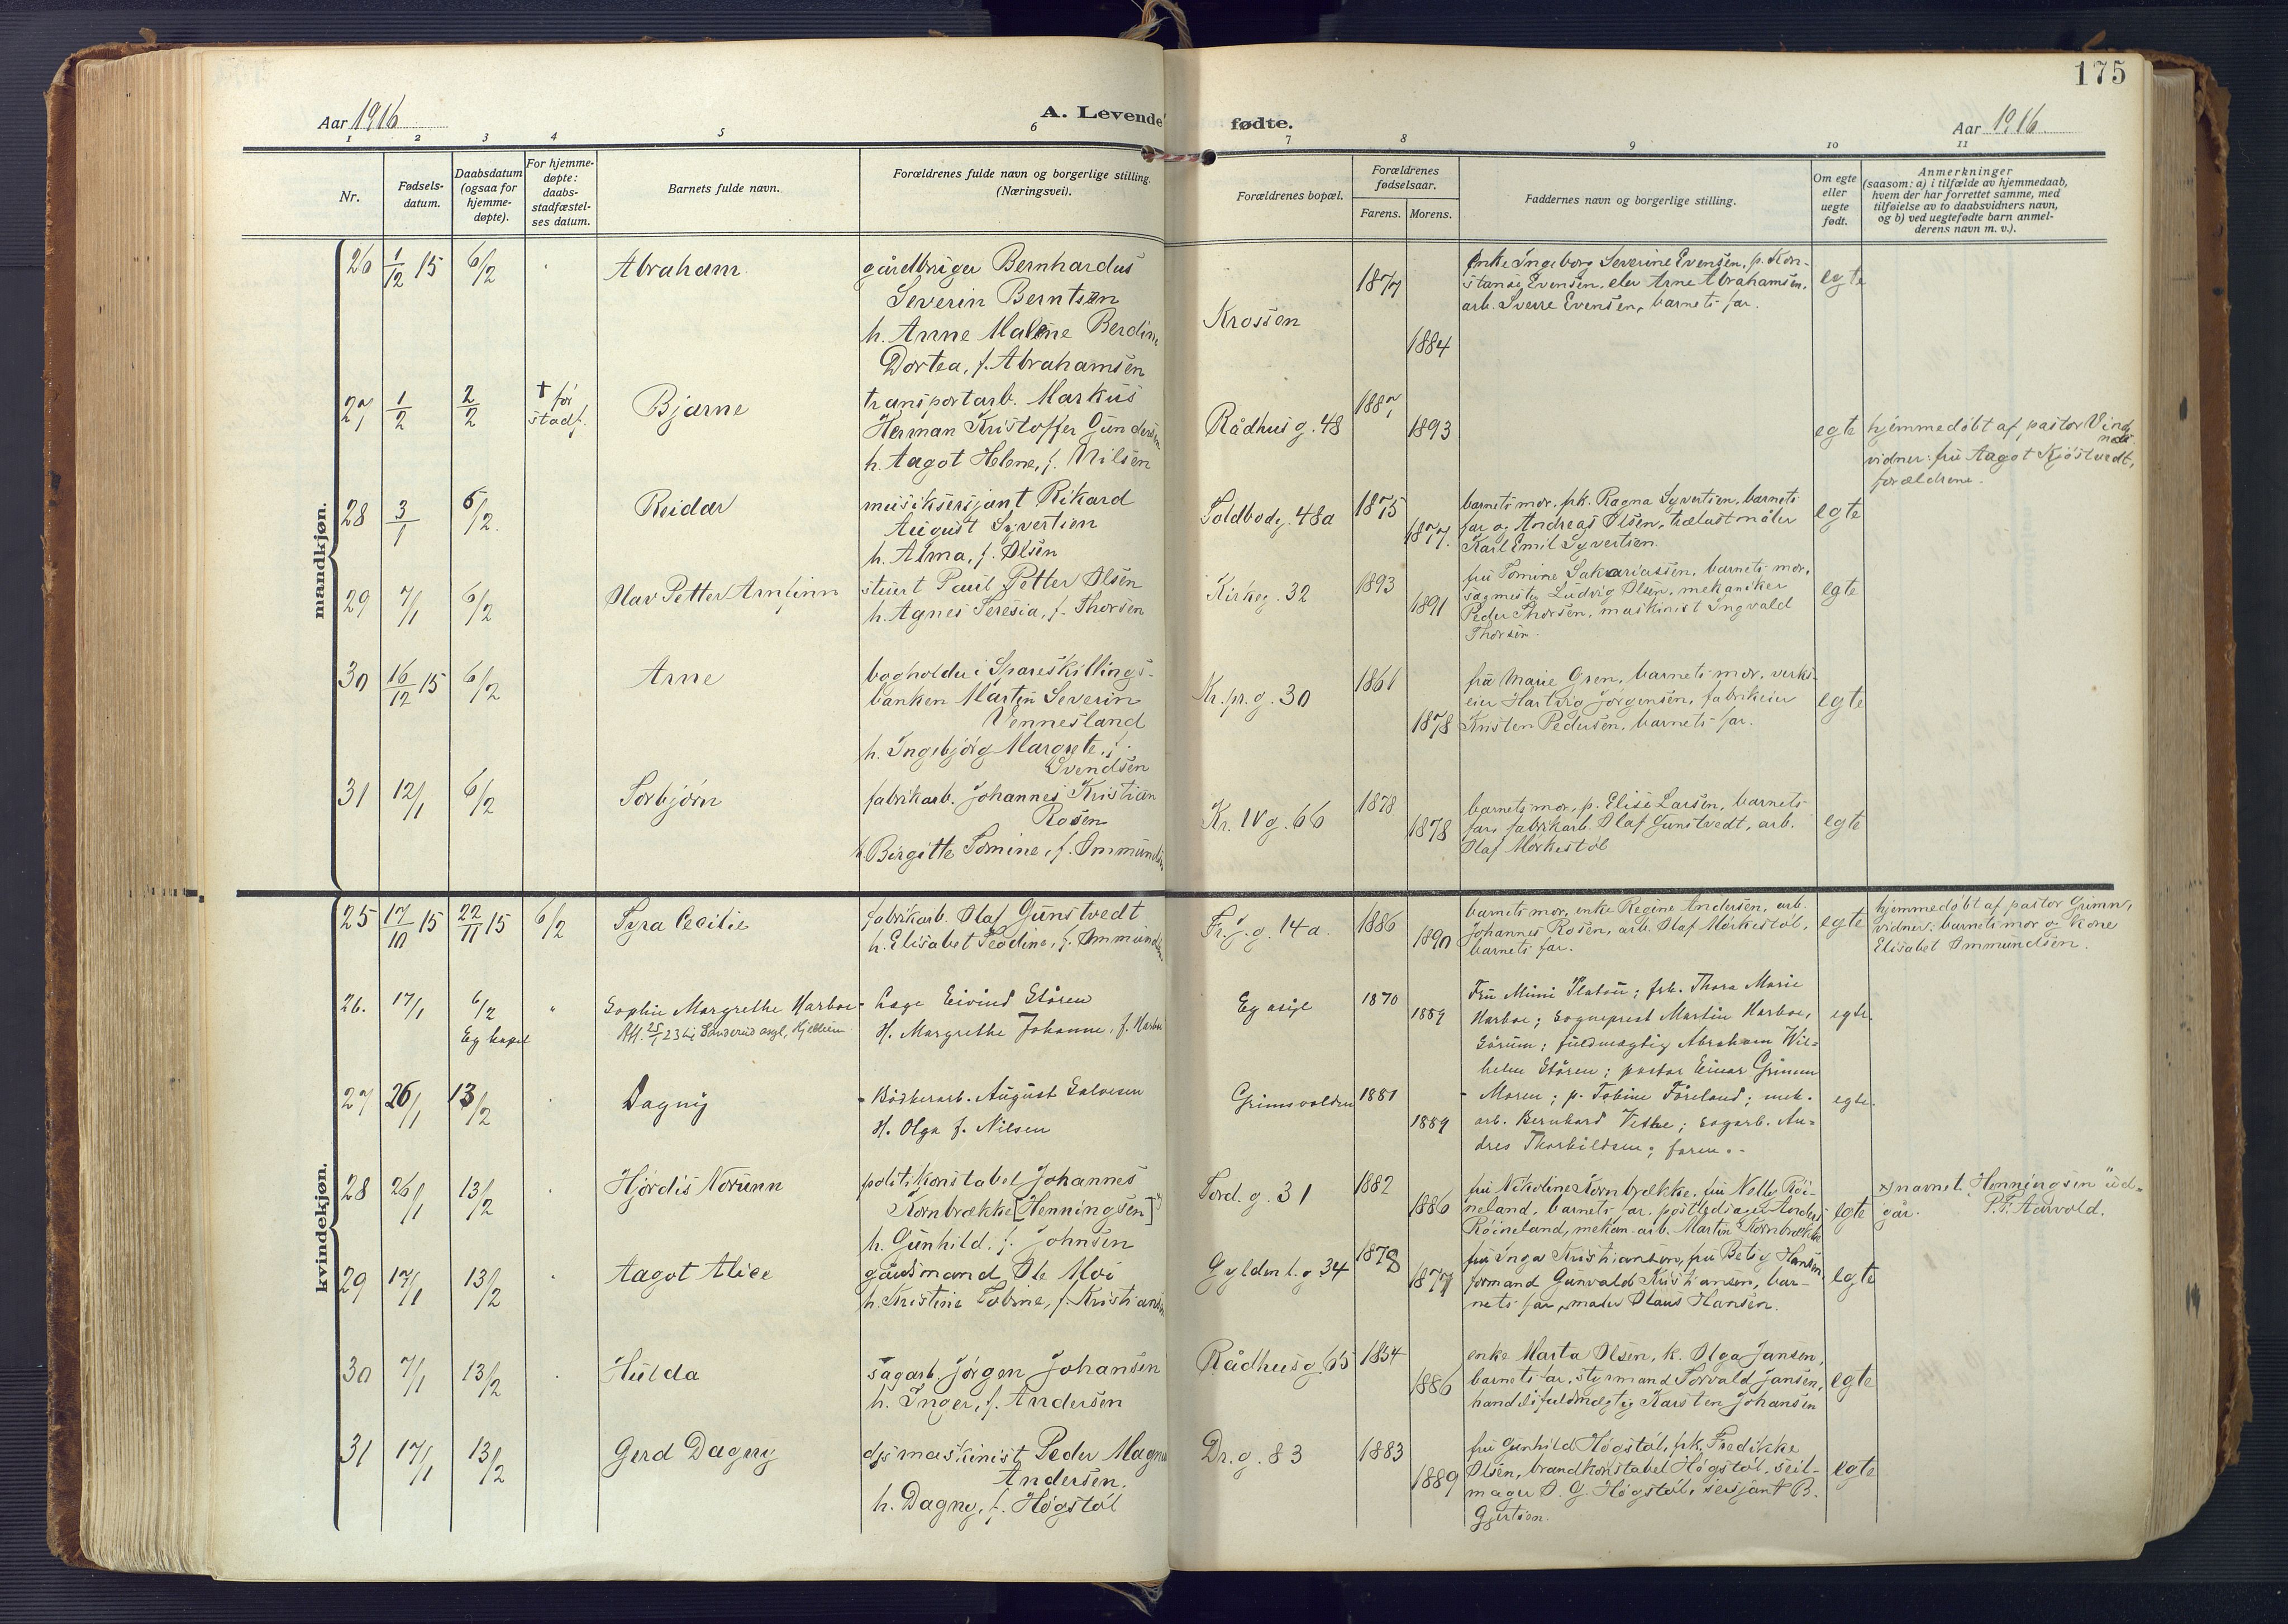 175
Aar 1916
A. Levende fødte.
Aar 1916
1 2 3 4 5 6 7 8 9 10 11
Nr.
Fødsels-
datum.
Daabsdatum
(ogsaa for
hjemme-
døpte).
For hjemme-
døpte:
daabs-
stadfæstel-
ses datum.
Barnets fulde navn.
Forældrenes fulde navn og borgerlige stilling.
(Næringsvei).
Forældrenes bopæl.
Forældrenes
fødselsaar.
Farens. Morens.
Faddernes navn og borgerlige stilling.
Om egte
eller
uegte
født.
Anmerkninger
(saasom: a) i tilfælde av hjemmedaab,
hvem der har forrettet samme, med
tilføielse av to daabsvidners navn,
og b) ved uegtefødte barn anmel-
derens navn m. v.).
mandkjøn.
26 1/12 15 6/2 Abraham
gårdbruger Bernhardus
Severin Berntsen
h. Anne Malene Berdine
Dortea, f. Abrahamsen
Krossen
1877
1884
Enke Ingeborg Severine Evensen, p. Kon-
stanse Evensen, elev Arne Abrahamsen,
arb. Sverre Evensen, barnets far.
egte
27 1/2 2/2
† før
stadf.
Bjarne
transportarb. Markus
Herman Kristoffer Gundersen
h. Aagot Helene, f. Nilsen
Rådhusg. 48
1887
1893
egte
hjemmedøbt af pastor
vidner: fru Aagot Kjøstvedt,
forældrene.
28 3/1 6/2 Reidar
musiksersjant Rikard
August Syvertsen
h. Alma, f. Olsen
Toldbodg. 48a
1875
1877.
barnets mor, frk. Ragna Syvertsen, barnets
far og Andreas Olsen, trælastmåler
Karl Emil Syvertsen.
egte
29 7/1 6/2 Olav Petter Arnfinn
stuert Paul Petter Olsen
h. Agnes Teresia, f. Thorsen
Kirkeg. 32
1893
1891
fru Tomine Sakariassen, barnets mor,
sagmester Ludvig Olsen, mekaniker
Peder Thorsen, maskinist Ingvald
Thorsen.
egte
30 16/12 15 6/2 Arne
bogholder i Spareskillings-
banken Martin Severin
Vennesland
h. Ingebjørg Margrete, f.
Svendsen
Kr. pr. g. 30
1861
1878
fru Marie Gren, barnets mor, verks-
eier Hartvig Jørgensen, fabrikeier
Kristen Pedersen, barnets far.
egte
31 12/1 6/2 Torbjørn
fabrikarb. Johannes Kristian
Rosen
h. Birgitte Tomine, f. Ommundsen
Kr. IV g. 66
1878
1878
barnets mor, p. Elise Larsen, barnets
far, fabrikarb. Olaf Gunstvedt, arb.
Olaf Mørkestøl
egte
kvindekjøn.
25 17/10 15 22/11 15 6/2 Tyra Cecilie
fabrikarb. Olaf Gunstvedt
h. Elisabet Teodine, f. Ommundsen
Fr. j. g. 14a.
1886
1890
barnets mor, enke Regine Andersen, arb.
Johannes Rosen, arb. Olaf Mørkestøl,
barnets far.
egte
hjemmedøbt af pastor Grimn,
vidner: barnets mor og kone
Elisabet Ommundsen.
26. 17/1 6/2
Eg kapel
" Sophie Margrethe Harboe
Att. 25/1 23 til Sanderud asyl,
Læge Eivind Støren
H. Margrethe Johanne, f. Harboe
Eg asyl
1870
1889
Fru Mimi Platou; frk. Thora Marie
Harboe; sogneprest Martin Harboe,
Sørum; fuldmægtig Abraham Wil-
helm Støren; pastor Einar Grimm
egte.
27 26/1 13/2 Dagny
Bødkerarb. August Salvesen
H. Olga f. Nilsen
Grimsvolden
1881
1889
Moren; p. Tobine Føreland; mek.
arb. Bernhard Vethe; sagarb. An-
dres Thorkildsen; faren.
egte.
28 26/1 13/2 Hjørdis Norunn
politikonstabel Johannes
Kornbrække [Henningsen] x)
h. Gunhild, f. Johnsen
Tord. g. 31
1882
1886
fru Nikoline Kornbrække, fru Nelly Røi-
neland, barnets far, postbud Anders
Røineland, mekan. arb. Martin Kornbrække
egte
x) navnet "Henningsen" ud-
går. P.F. Aarvold.
29 17/1 13/2 Aagot Alice
gårdsmand Ole Moi
h. Kristine Tobine, f. Kristiansen
Gyldenl. g 34
1878
1877
fru Inga Kristiansen, fru Betsy Hansen
formand Gunvald Kristiansen, bar-
nets far, maler Olaus Hansen.
egte
30 7/1 13/2 Hulda
sagarb. Jørgen Johansen
h. Inger, f. Andersen
Rådhusg. 65
1854
1886
enke Marta Olsen, k. Olga Jansen,
barnets far, styrmand Torvald Jansen,
handelsfuldmægtig Karsten Johansen
egte
31 17/1 13/2 Gerd Dagny
d/s maskinist Peder Magnus
Andersen.
h. Dagny, f. Høgstøl
Dr. g. 83
1883
1889
fru Gunhild Høgstøl, frk. Fredikke
Olsen, brandkonstabel Høgstøl, seil-
mager O. G. Høgstøl, sersjant B.
Gjertsen.
egte